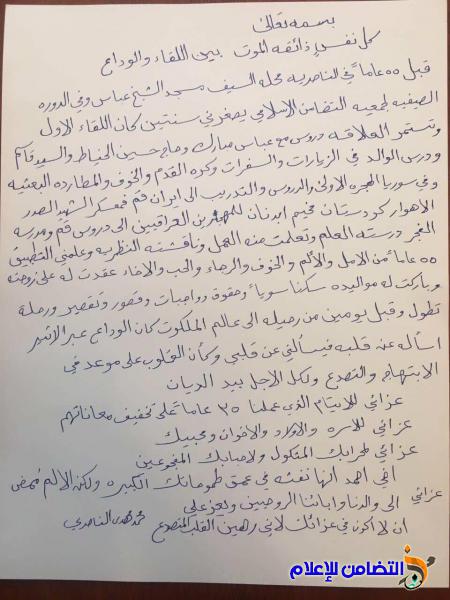 بسمه تعالى
كل نفس ذائقه الموت بين اللقاء والوداع
قبل ٥٥ عاماً في الناصريه محله السيف مسجد الشيخ عباس وفي الدوره
الصيفيه لجمعيه التضامن الاسلامي يصغرني سنتين كان اللقاء الاول
وتستمر العلاقه دروس مع عباس مبارك وحاج حسين الخياط والسيد قاسم
ودرس الوالد في الزيارات والسفرات وكره القدم والخوف والمطارده البعثيه
وفي سوريا الهجره الاولى والدروس والتدريب الى ايران قم فمعسكر الشهيد الصدر
الاهواز كردستان مخيم ازنا للمهجرين العراقيين الى دروس قم ومدرسه
الفجر درسته العلم وتعلمت منه العمل وناقشته النظريه وعلمني التطبيق
٥٥ عاماً من الامل والألم والخوف والرجاء والحب والاخاء عقدت له على زوجته
وباركت له مواليده سكنا سوياً وحقوق وواجبات وقصور وتقصير ورحلة
تطول وقبل يومين من رحيله الى عالم الملكوت كان الوداع عبر الاثير
اسأله عن قلبه فيسألني عن قلبي وكأن القلوب على موعد في
الابتهاج والتصدع ولكل الاجل بيد الديان
عزائي للايتام الذي عملنا ٣٥ عاماً على تخفيف معاناتهم
عزائي للاسره والاولاد والاخوان ومحبيك
عزائي لمحرابك المثكول ولاحبابك المفجوعين
اخي احمد انها نفثه في عمق طموحاتك الكبيره ولكن الالم ممض
عزائي الى والدنا وابائنا الروحيين ويعز علي
ان لا اكون في عزائك لاني رهين القلب المتصدع محمد مهدي الناصري
التضامن للإعلام